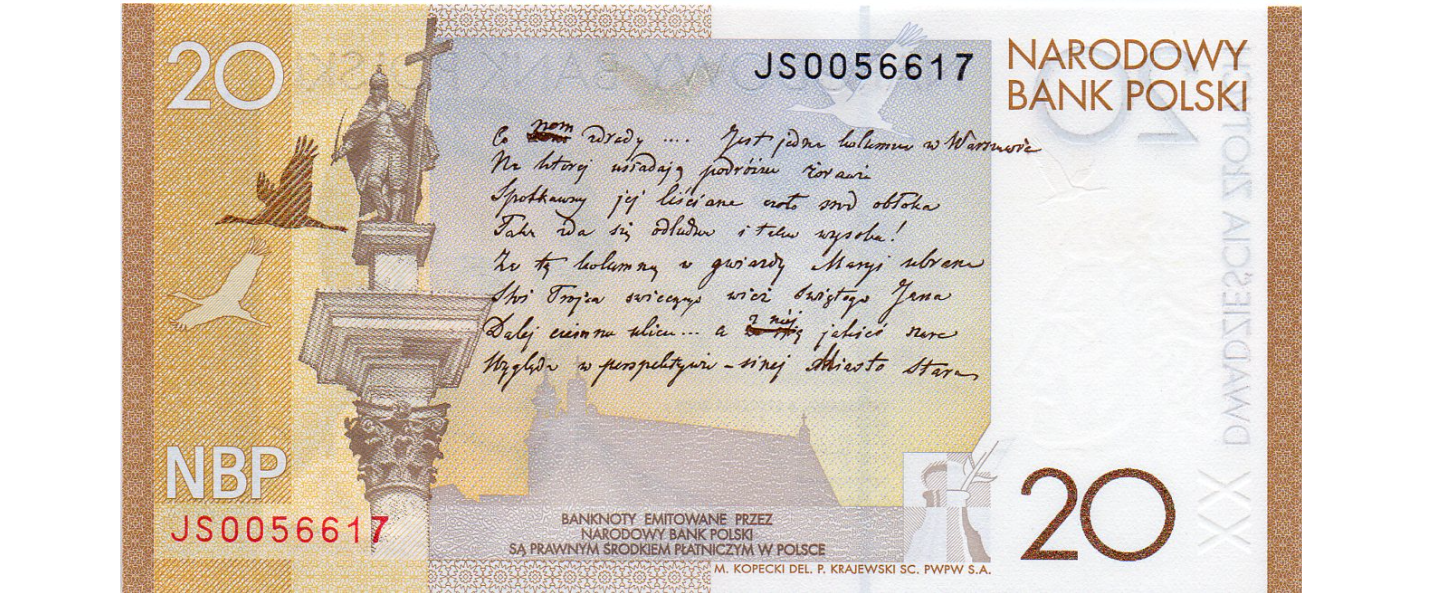 20
JS0056617
NARODOWY
BANK POLSKI
Co nom zdrady .... Jest jedna kolumna w Warszawie
Na ktorej usiadają podróżne żorawie
Spotkawszy jej liściane czoło środ obłoka
Taka zda się odludna i taka wysoka!
Za tą kolumną w gwiazdy Maryi ubrana
Stoi Trojca świecąca wież świętego Jana
Dalej ciemna ulica... a z niej jakieś szare
Wygląda w perspektywie – sinej Miasto Stare
NBP
JS0056617
BANKNOTY EMITOWANE PRZEZ
NARODOWY BANK POLSKI
SĄ PRAWNYM ŚRODKIEM PŁATNICZYM W POLSCE
M. KOPECKI DEL. P. KRAJEWSKI SC. PWPW S.A.
20
XX